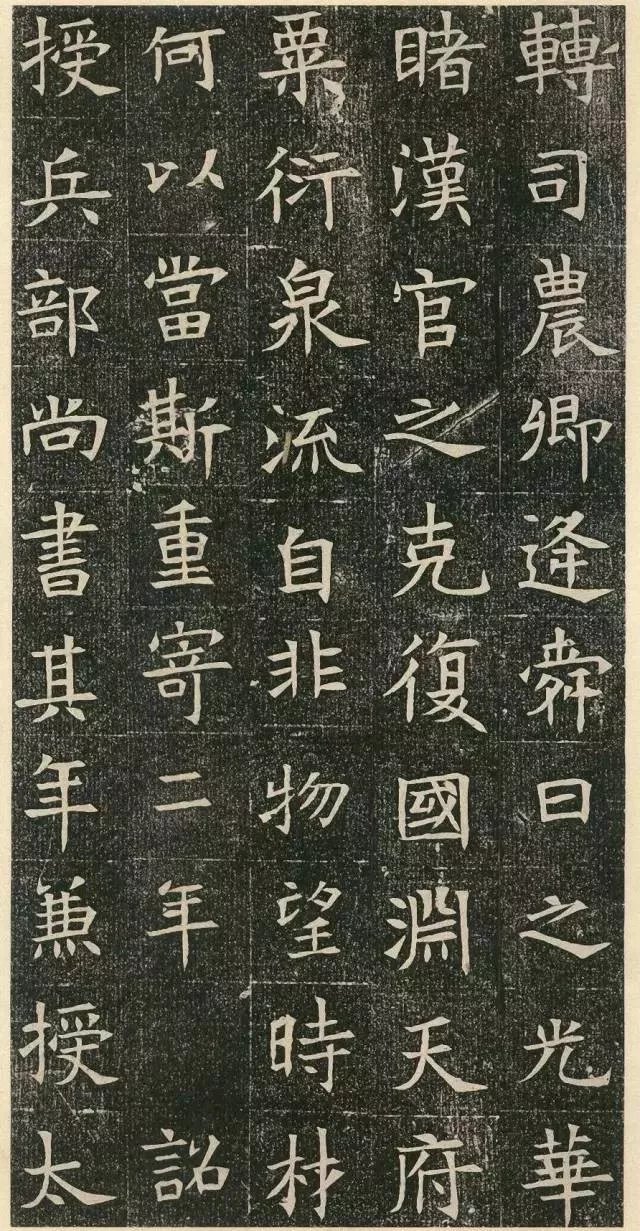 轉司農卿逢舜日之光華
睹漢官之克復國淵天府
粟衍泉流自非物望時材
何以當斯重寄二年詔
授兵部尚書其年兼授太